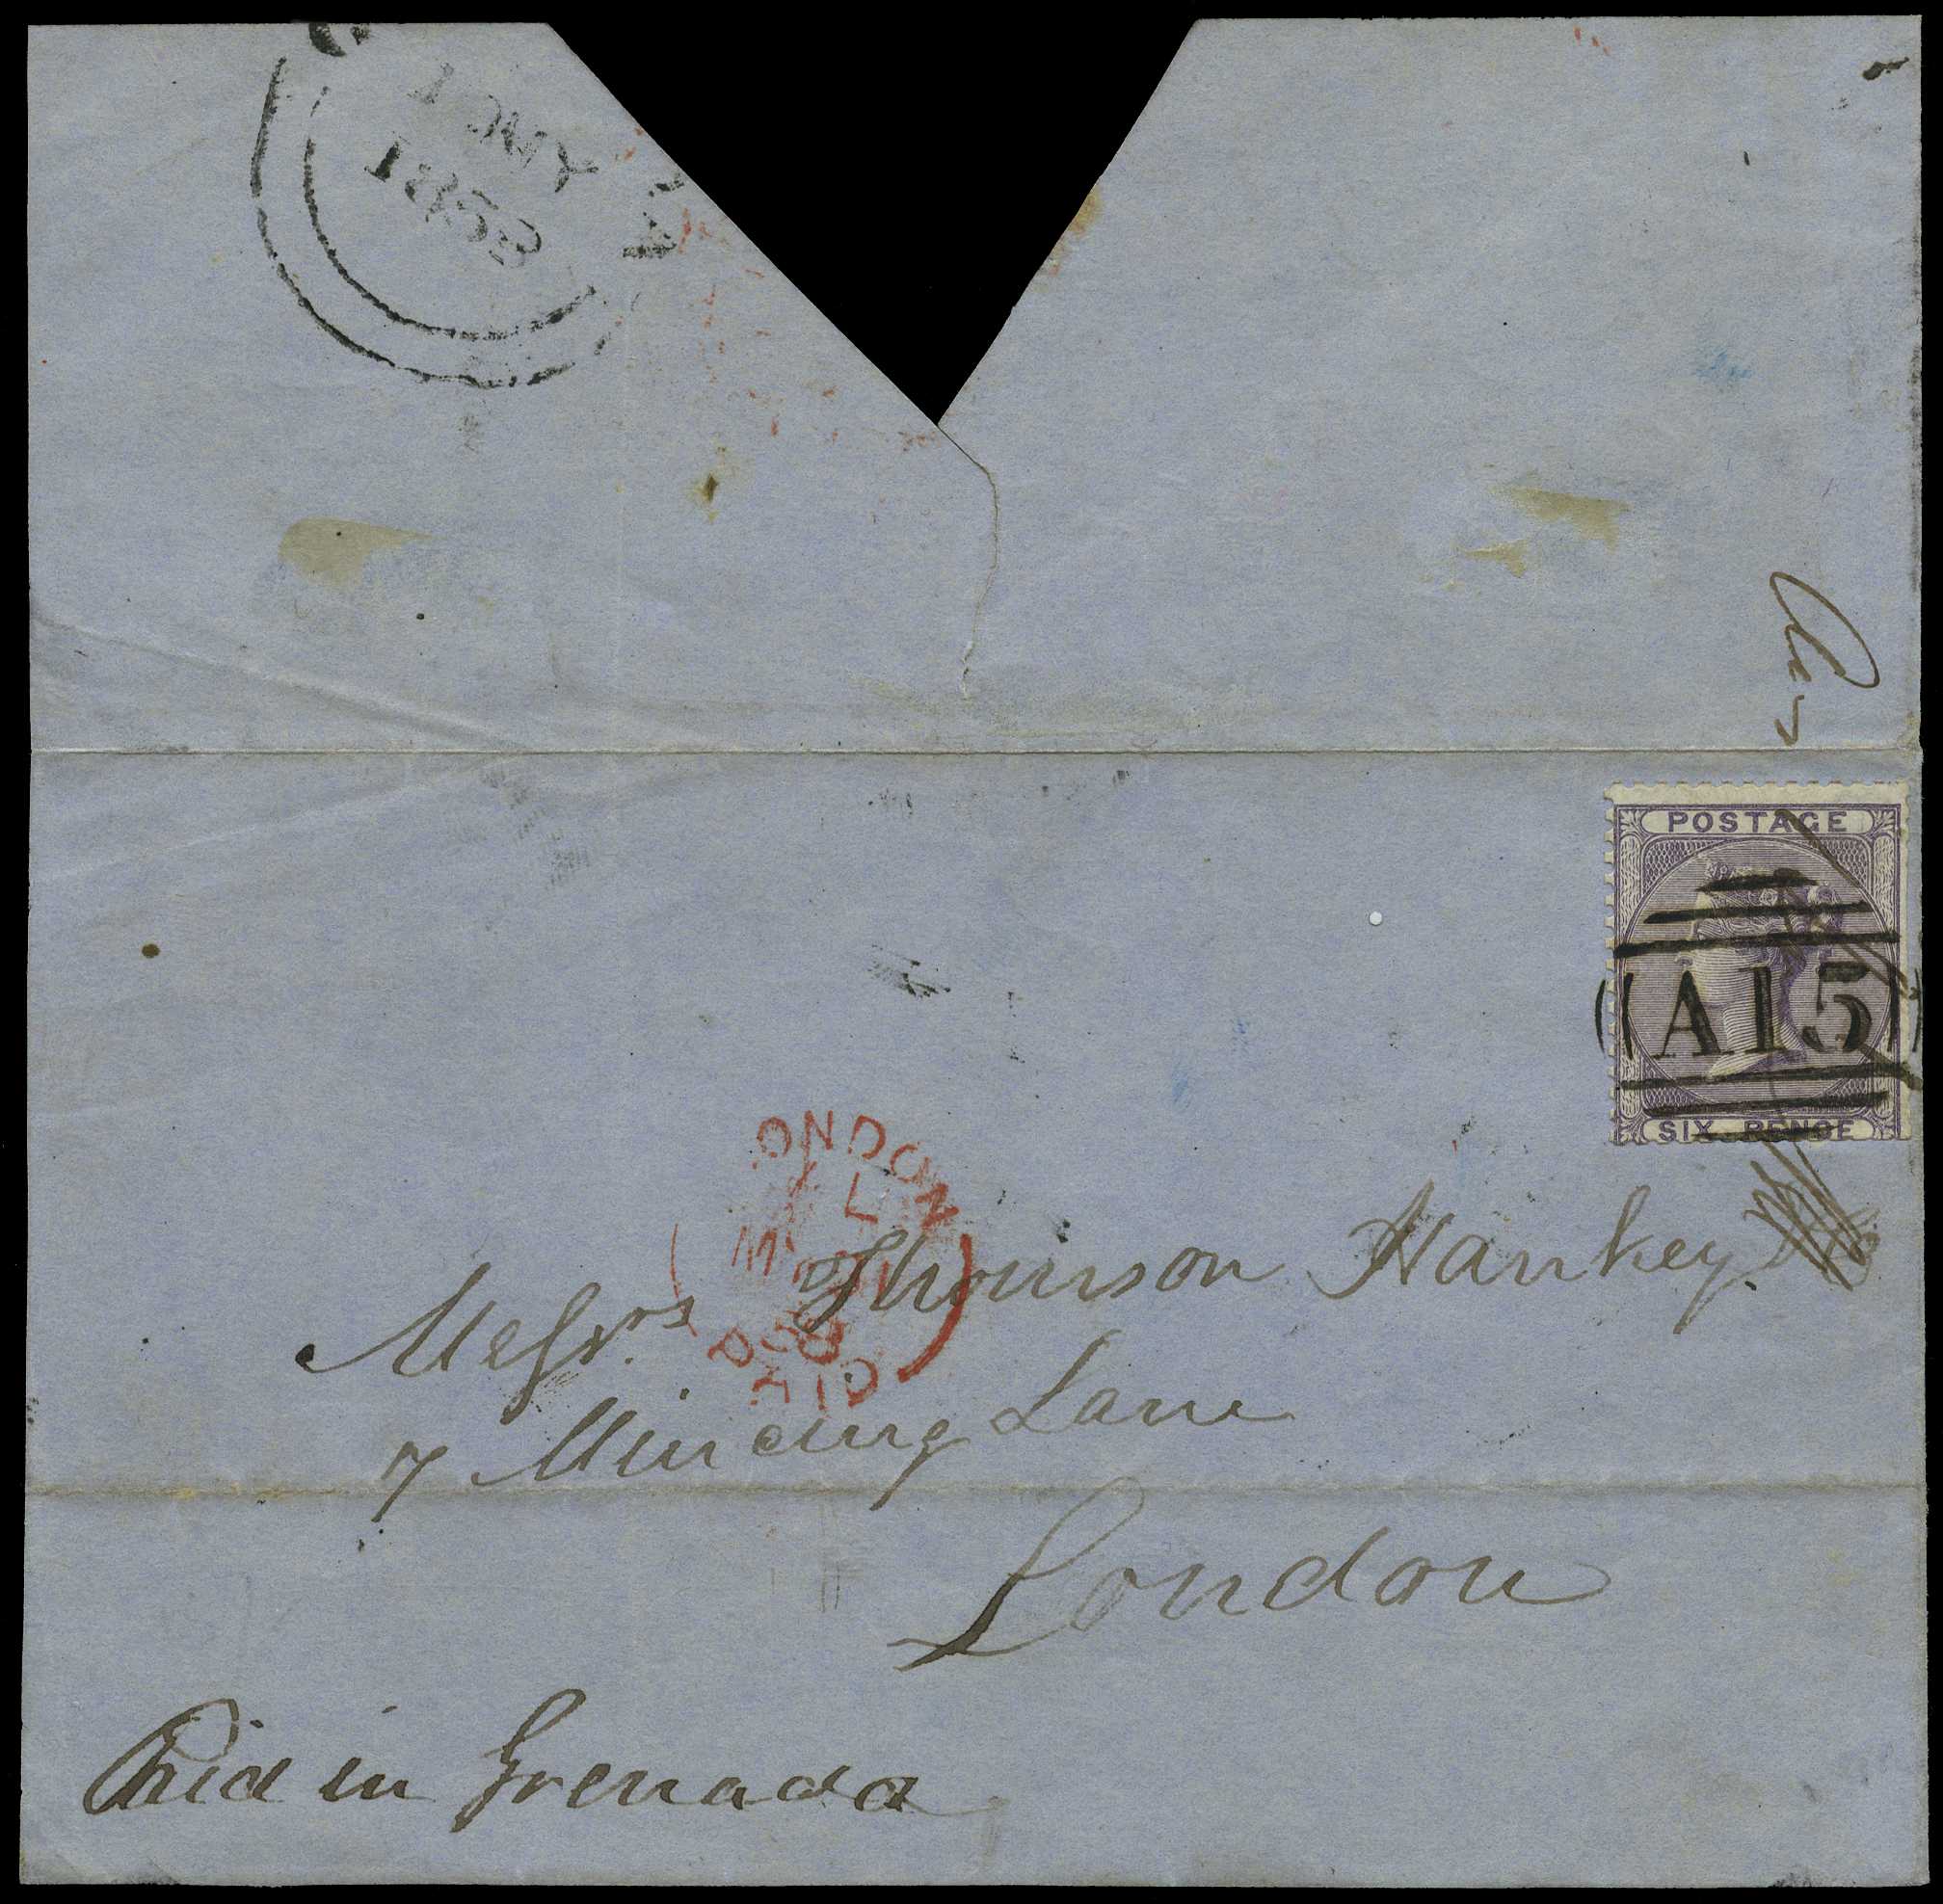 MY
1858
POSTAGE
A15
SIX PENCE
LONDON
L
PAID
Messrs Thomson Hankey
7 Mincing Lane
London
Paid in Grenada